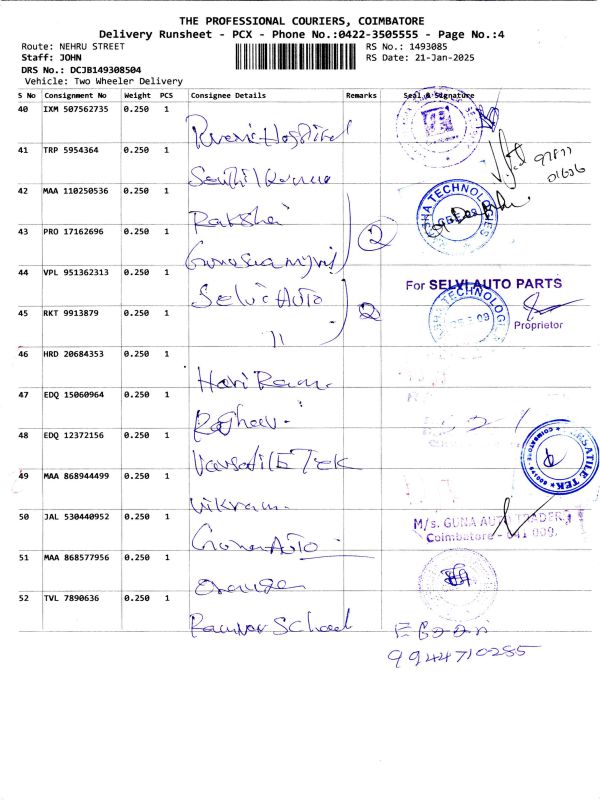 THE PROFESSIONAL COURIERS, COIMBATORE
Delivery Runsheet - PCX - Phone No.:0422-3505555 - Page No.:4
Route: NEHRU STREET RS No.: 1493085
Staff: JOHN RS Date: 21-Jan-2025
DRS No.: DCJB149308504
Vehicle: Two Wheeler Delivery
S No Consignment No Weight PCS Consignee Details Remarks Seal & Signature
40 IXM 507562735 0.250 1
41 TRP 5954364 0.250 1 97877
01636
42 MAA 110250536 0.250 1 Rakshai
43 PRO 17162696 0.250 1 2
44 VPL 951362313 0.250 1 Selvi Auto For SELVI AUTO PARTS
45 RKT 9913879 0.250 1 11 2 Proprietor
46 HRD 20684353 0.250 1 Hari Ram
47 EDQ 15060964 0.250 1
48 EDQ 12372156 0.250 1 Varsatile Tek VERSATILE TEK COIMBATORE
49 MAA 868944499 0.250 1 Vikram
50 JAL 530440952 0.250 1 Guna Auto M/s. GUNA AUTO TRADER
Coimbatore - 641 009.
51 MAA 868577956 0.250 1 Orange
52 TVL 7890636 0.250 1 School
9944710285